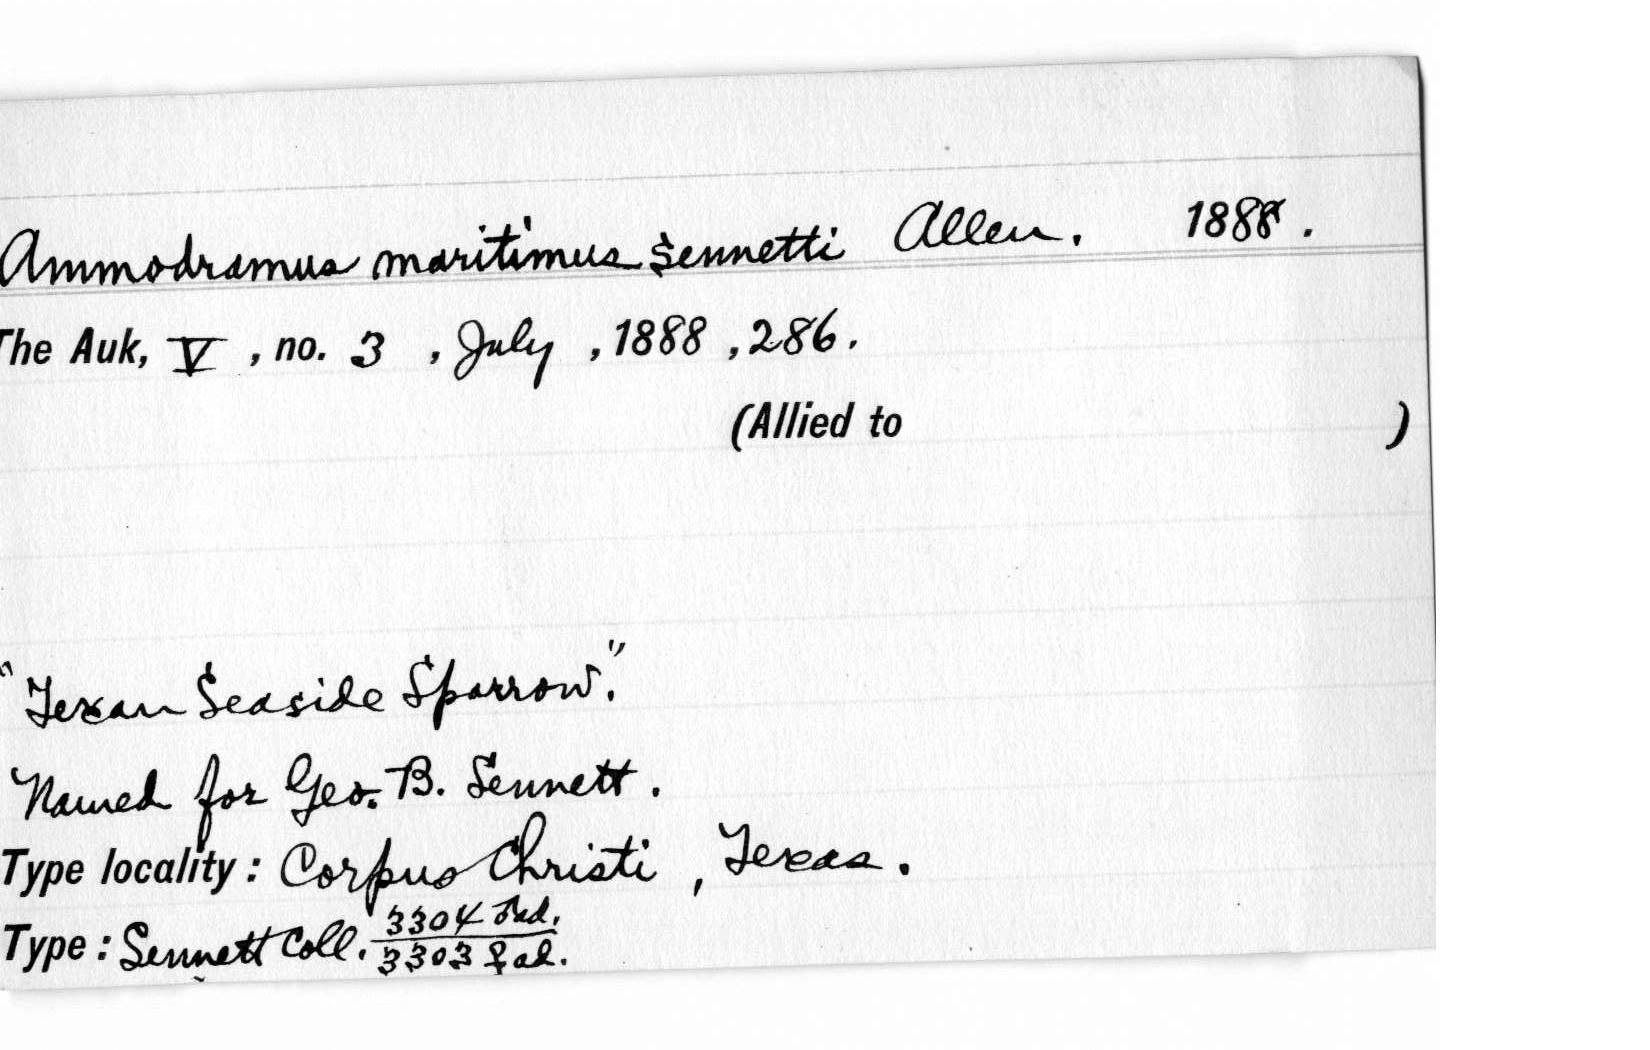 Ammodramus maritimus sennetti Allen. 1888.
The Auk, V, no. 3, July, 1888, 286.
(Allied to )
"Texan Seaside Sparrow."
Named for Geo. B. Sennett.
Type locality: Corpus Christi, Texas.
Type: Sennett Coll. 3304 ♂ ad.
3303 ♀ ad.